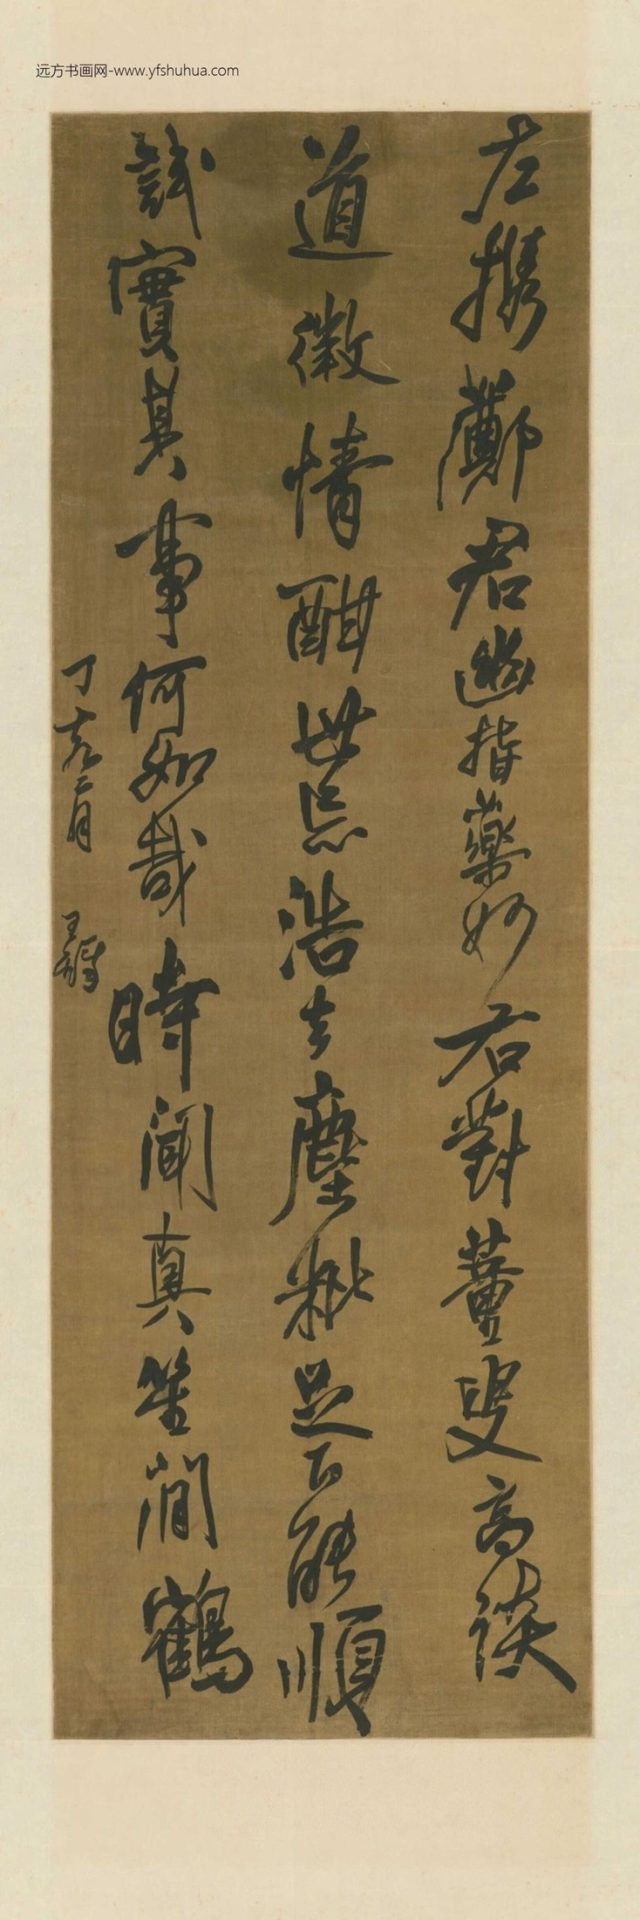 远方书画网-www.yfshuhua.com
左携君幽指藥妙右對董叟高談
道徵情酣世忘浩去塵粃足下能順
試實其事何如哉時聞真笙澗鶴
丁亥二月 王鐸